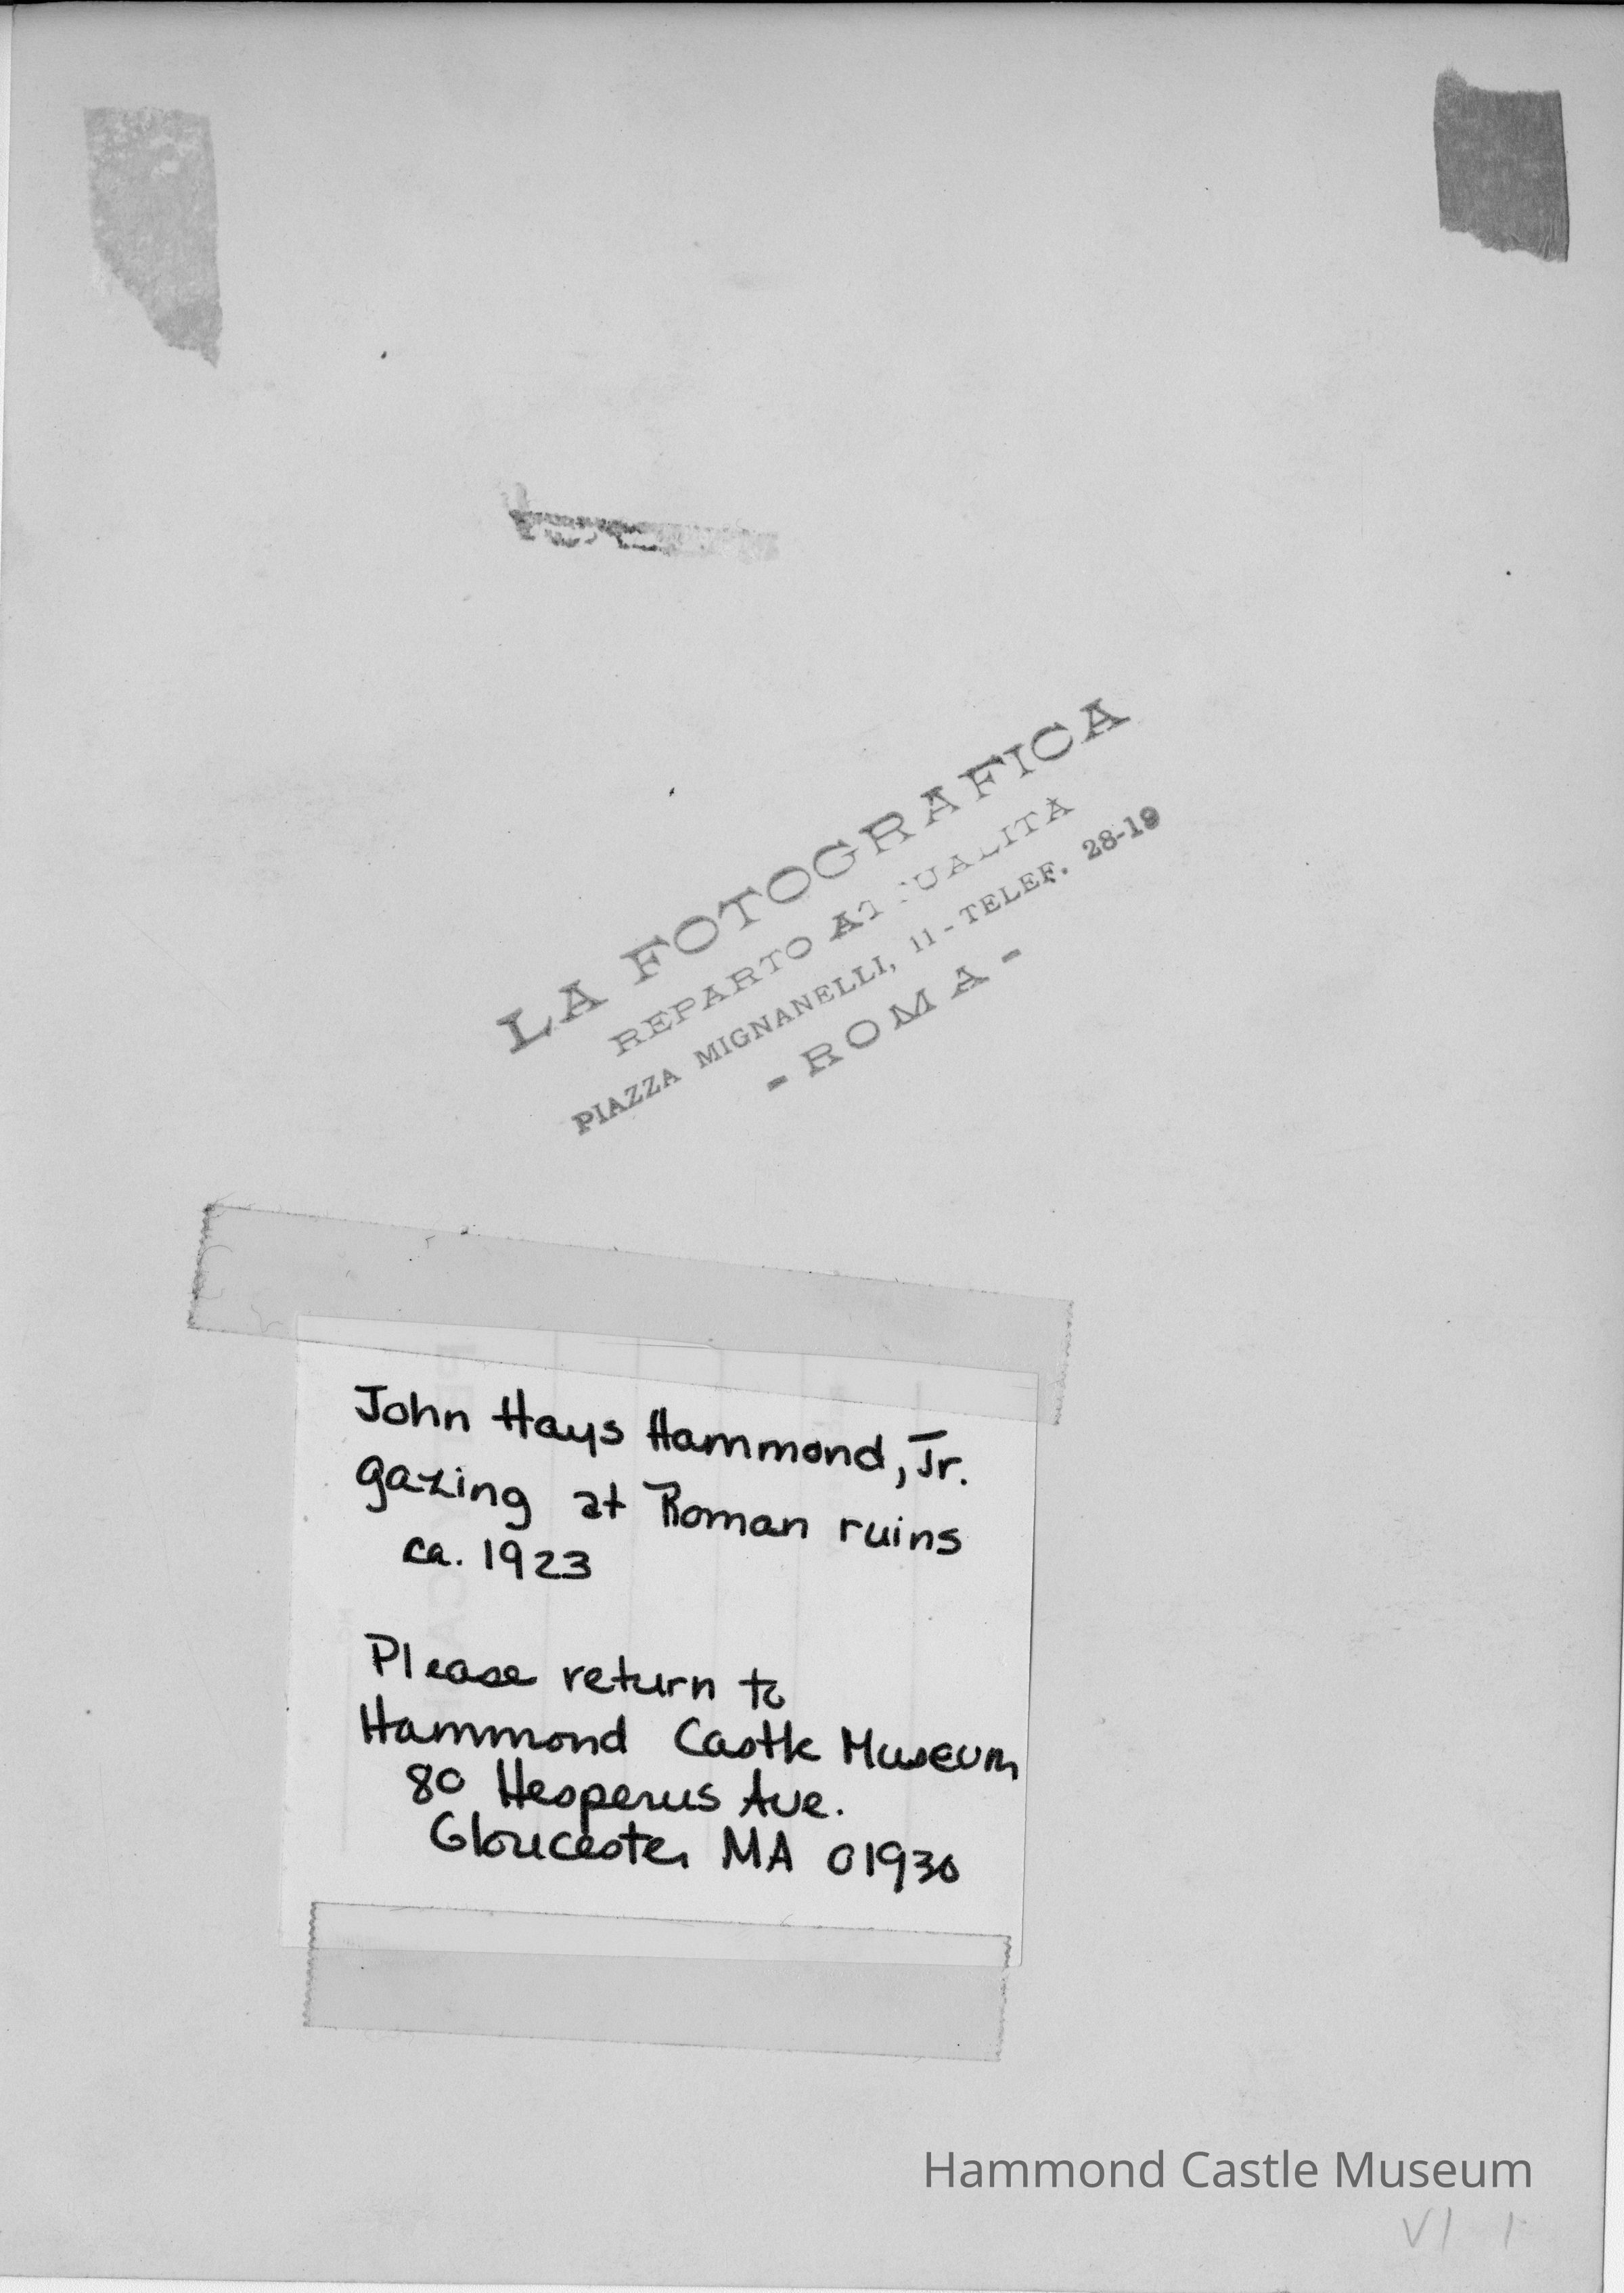 LA FOTOGRAFICA
REPARTO ATTUALITA
PIAZZA MIGNANELLI, 11 - TELEF. 28-19
- ROMA -
John Hays Hammond, Jr.
gazing at Roman ruins
ca. 1923
Please return to
Hammond Castle Museum
80 Hesperus Ave.
Gloucester MA 01930
Hammond Castle Museum